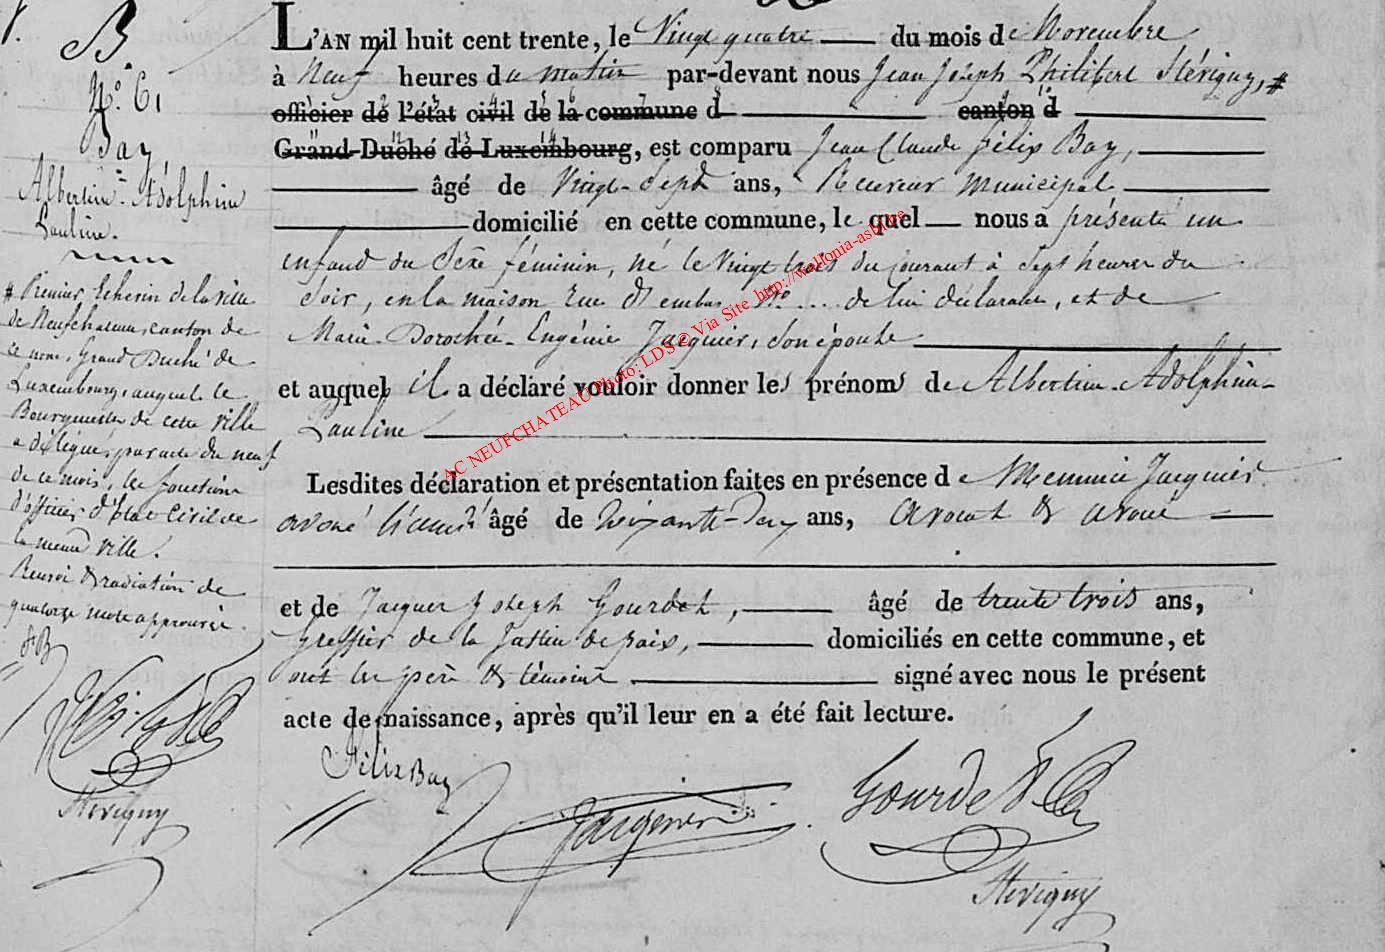 B.
N.º 61
Bay
Albertine-Adolphine
Pauline.
# Premier Echevin de la ville
de Neufchateau, canton de
ce nom, Grand Duché de
Luxembourg, auquel le
Bourgmestre de cette ville
a délégué, par acte du neuf
de ce mois, les fonctions
d'officier d'Etat Civil de
la meme ville.
Renvoi & radiation de
quatorze mots approuvés.
FB
Stevigny
L'AN mil huit cent trente, le Vingt quatre du mois de Novembre
à Neuf heures du matin par-devant nous Jean Joseph Philibert Stévigny, #
officier de l'état civil de la commune d canton d
Grand-Duché de Luxembourg, est comparu Jean Claude félix Bay,
âgé de Vingt-Sept ans, Receveur municipal
domicilié en cette commune, lequel nous a présenté un
enfant du Sexe féminin, né le Vingt trois du courant à Sept heures du
Soir, en la maison rue d'embas Nº .... de lui déclarant, et de
Marie-Dorothée-Eugénie Jacquier, Son épouse
et auquel il a déclaré vouloir donner les prénoms de Albertine-Adolphine-
Pauline
Lesdites déclaration et présentation faites en présence de Jacquier
avoué licencié âgé de ans, avocat & avoué
et de Jacques Joseph Gourdet, âgé de trente trois ans,
greffier de la Justice de paix, domiciliés en cette commune, et
ont les père & témoins signé avec nous le présent
acte de naissance, après qu'il leur en a été fait lecture.
Félix Bay
Jacquier
Gourdet
Stevigny
AC NEUFCHATEAU Photo: LDS © Via Site http://wallonia-asbl.be